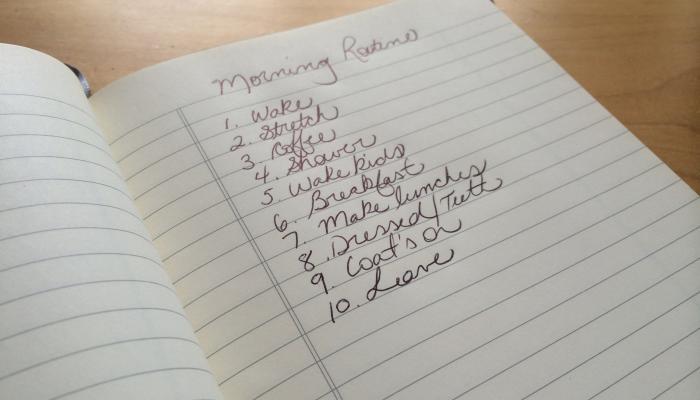 Morning Routine
1. Wake
2. Stretch
3. Coffee
4. Shower
5. Wake kids
6. Breakfast
7. Make lunches
8. Dressed/Teeth
9. Coat's On
10. Leave